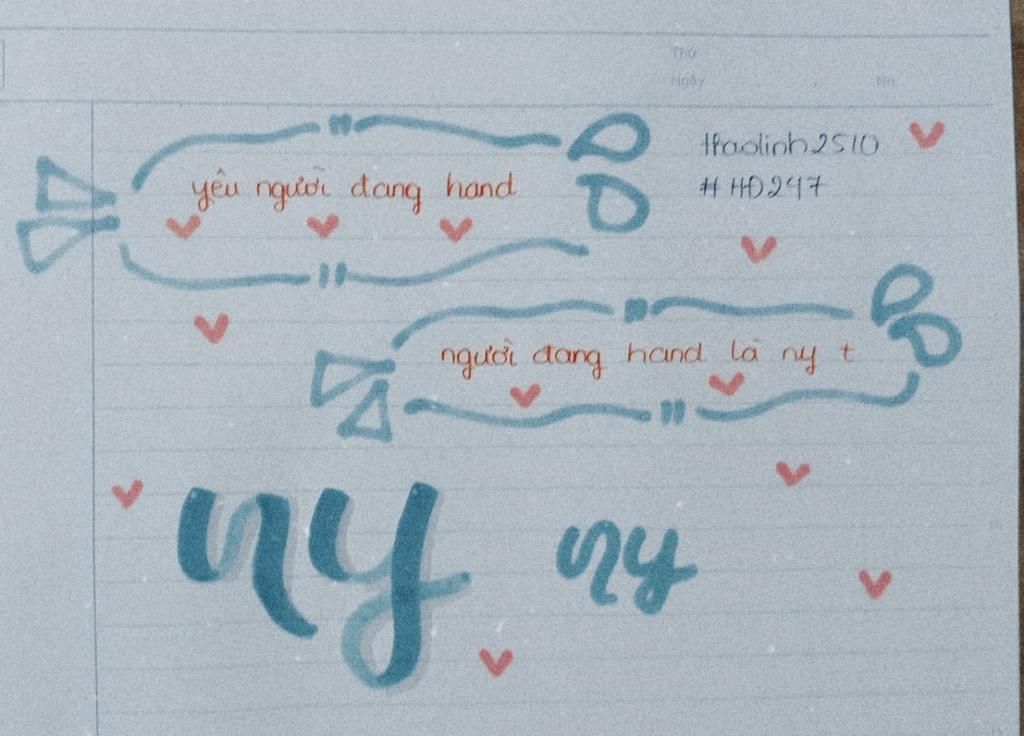 Thứ
Ngày
No
thaolinh2510
#HD247
yêu người đang hand
người đang hand là ny t
ny ny